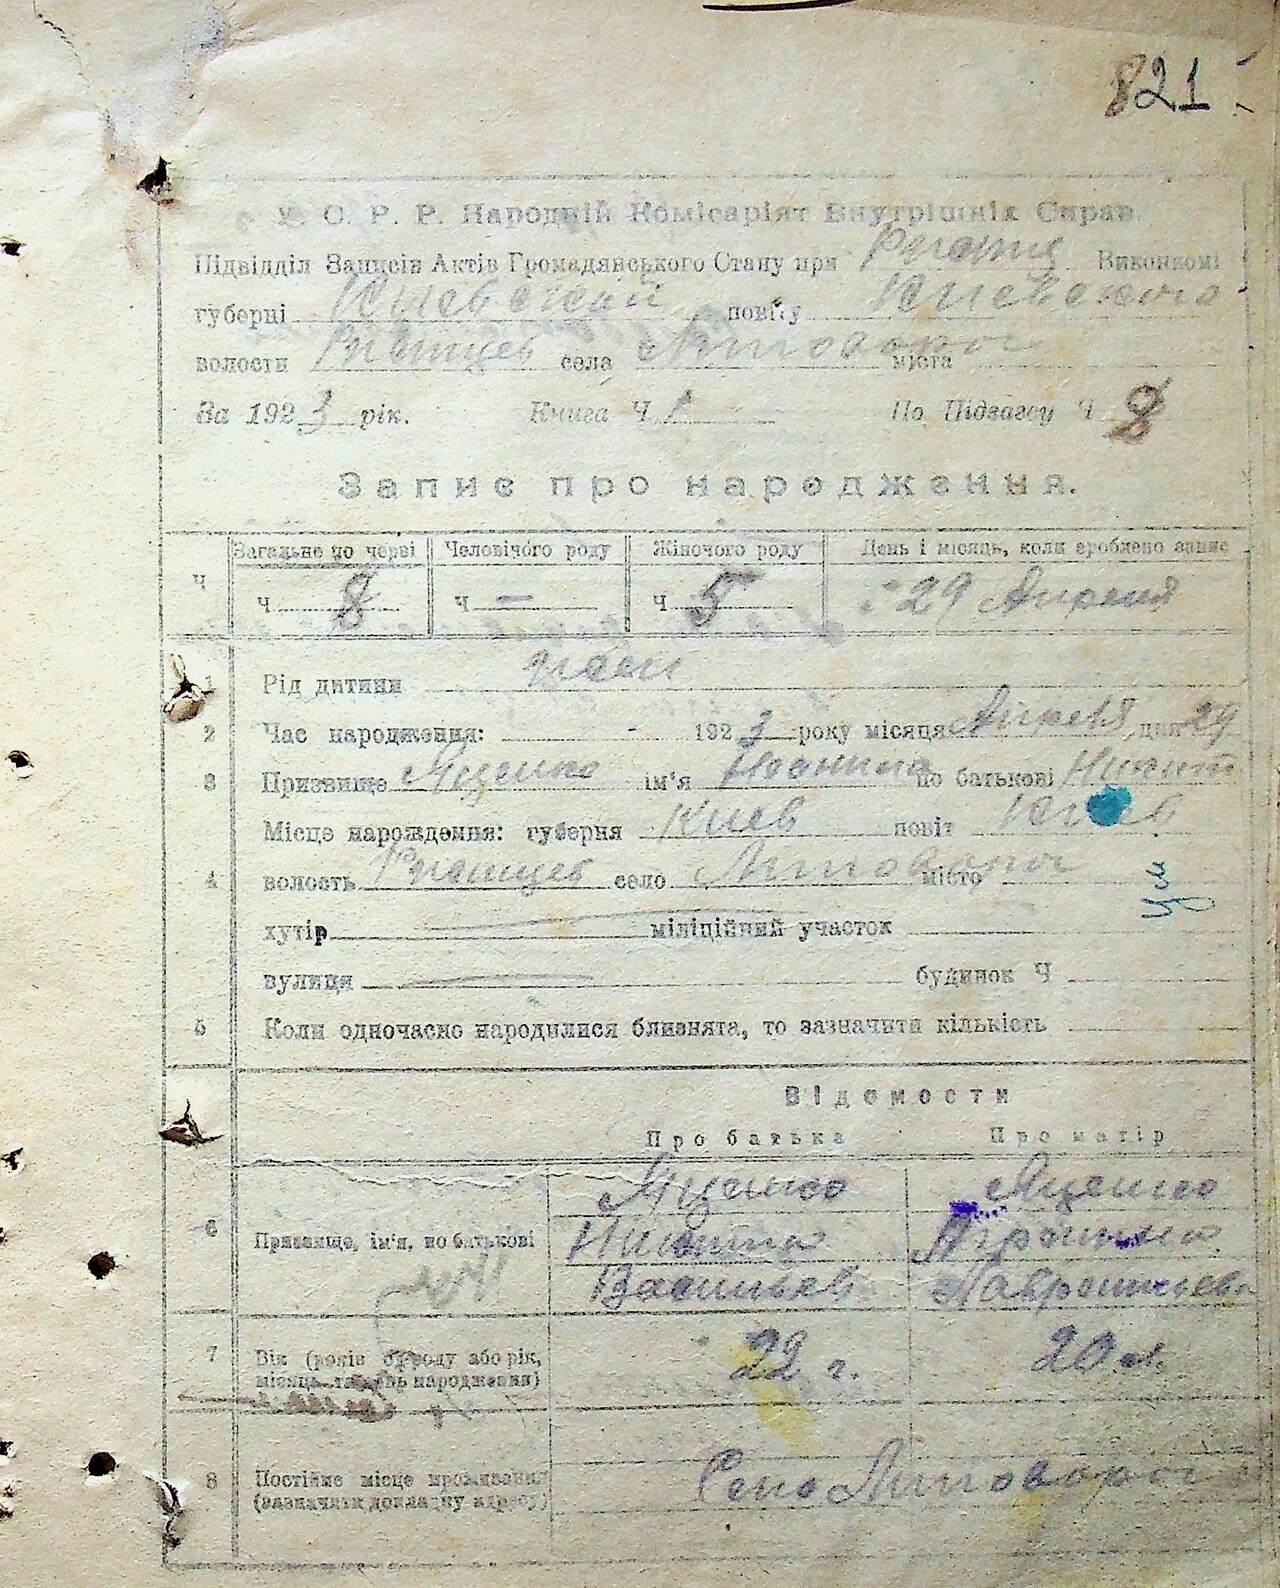 821
У. С. Р. Р. Народній Комісаріят Внутрішніх Справ.
Підвідділ Записів Актів Громадянського Стану при Виконкомі
губерні Киевской повіту Киевского
волости села міста
За 1923 рік. Книга Ч 1 По Підзагсу Ч 8
Запис про народження.
Загальне по черзі Человічого роду Жіночого роду День і місяць, коли зроблено запис
Ч Ч 8 Ч — Ч 5 29 Апреля
1 Рід дитини
2 Час народження: 1923 року місяця Апреля дня 29
3 Призвище Яценко ім'я по батькові Никит
Місце народження: губерня Киев повіт Киев
4 волость село місто
хутір міліційний участок
вулиця будинок Ч
5 Коли одночасно народилися близнята, то зазначити кількість
Відомости
Про батька Про матір
Яценко Яценко
6 Призвище, ім'я, по батькові Никита
Васильев Лаврентиева
7 Вік (років от роду або рік, 22 г. 20 л.
місяць та день народження)
8 Постійне місце проживання Село
(зазначити докладну адресу)